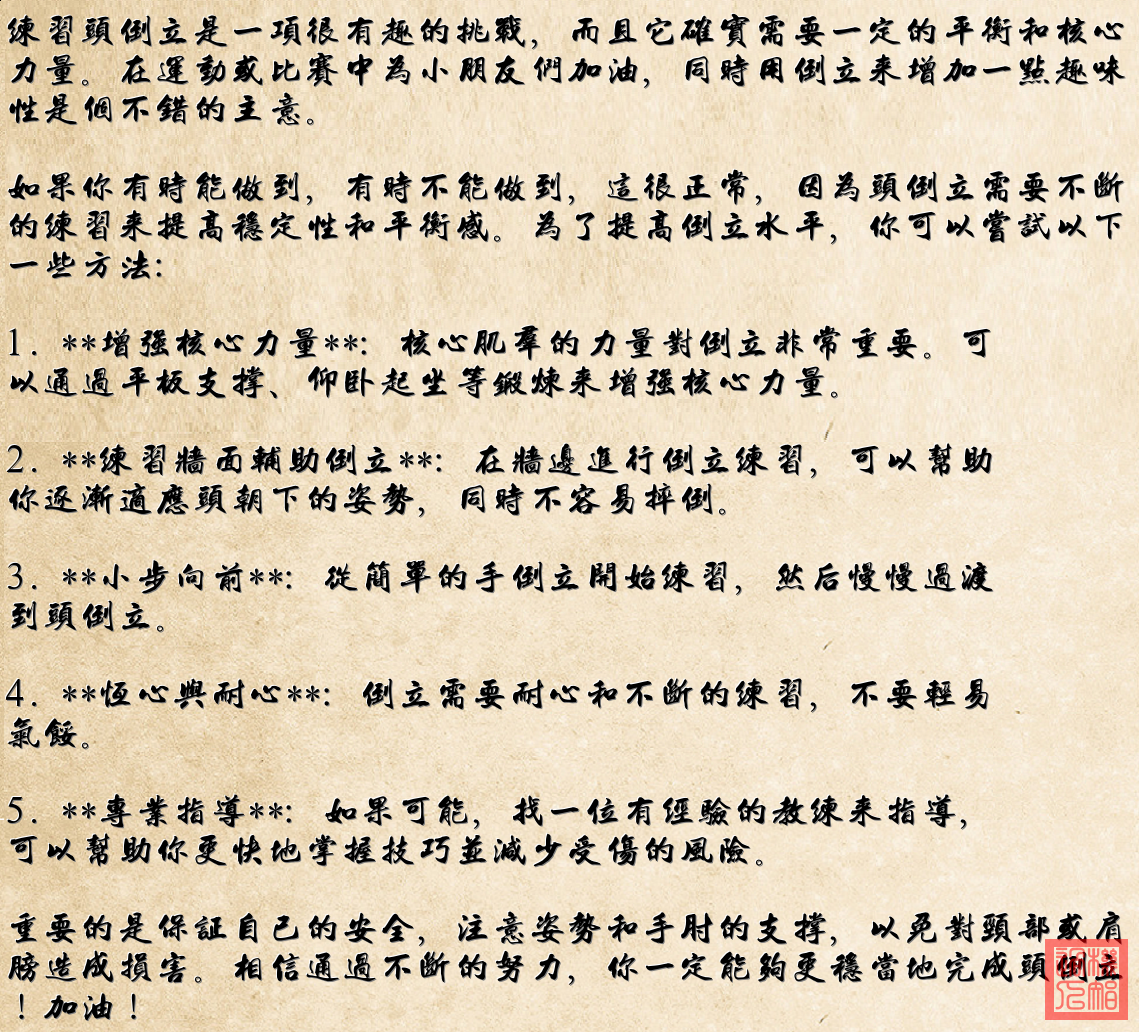 練習頭倒立是一項很有趣的挑戰，而且它確實需要一定的平衡和核心
力量。在運動或比賽中為小朋友們加油，同時用倒立来增加一點趣味
性是個不錯的主意。
如果你有時能做到，有時不能做到，這很正常，因為頭倒立需要不斷
的練習来提高穩定性和平衡感。為了提高倒立水平，你可以嘗試以下
一些方法：
1. **增强核心力量**：核心肌羣的力量對倒立非常重要。可
以通過平板支撐、仰卧起坐等鍛煉来增强核心力量。
2. **練習牆面輔助倒立**：在牆邊進行倒立練習，可以幫助
你逐漸適應頭朝下的姿勢，同時不容易摔倒。
3. **小步向前**：從簡單的手倒立開始練習，然后慢慢過渡
到頭倒立。
4. **恆心與耐心**：倒立需要耐心和不斷的練習，不要輕易
氣餒。
5. **專業指導**：如果可能，找一位有經驗的教練来指導，
可以幫助你更快地掌握技巧並減少受傷的風險。
重要的是保証自己的安全，注意姿勢和手肘的支撐，以免對頸部或肩
膀造成損害。相信通過不斷的努力，你一定能夠更穩當地完成頭倒立
！加油！